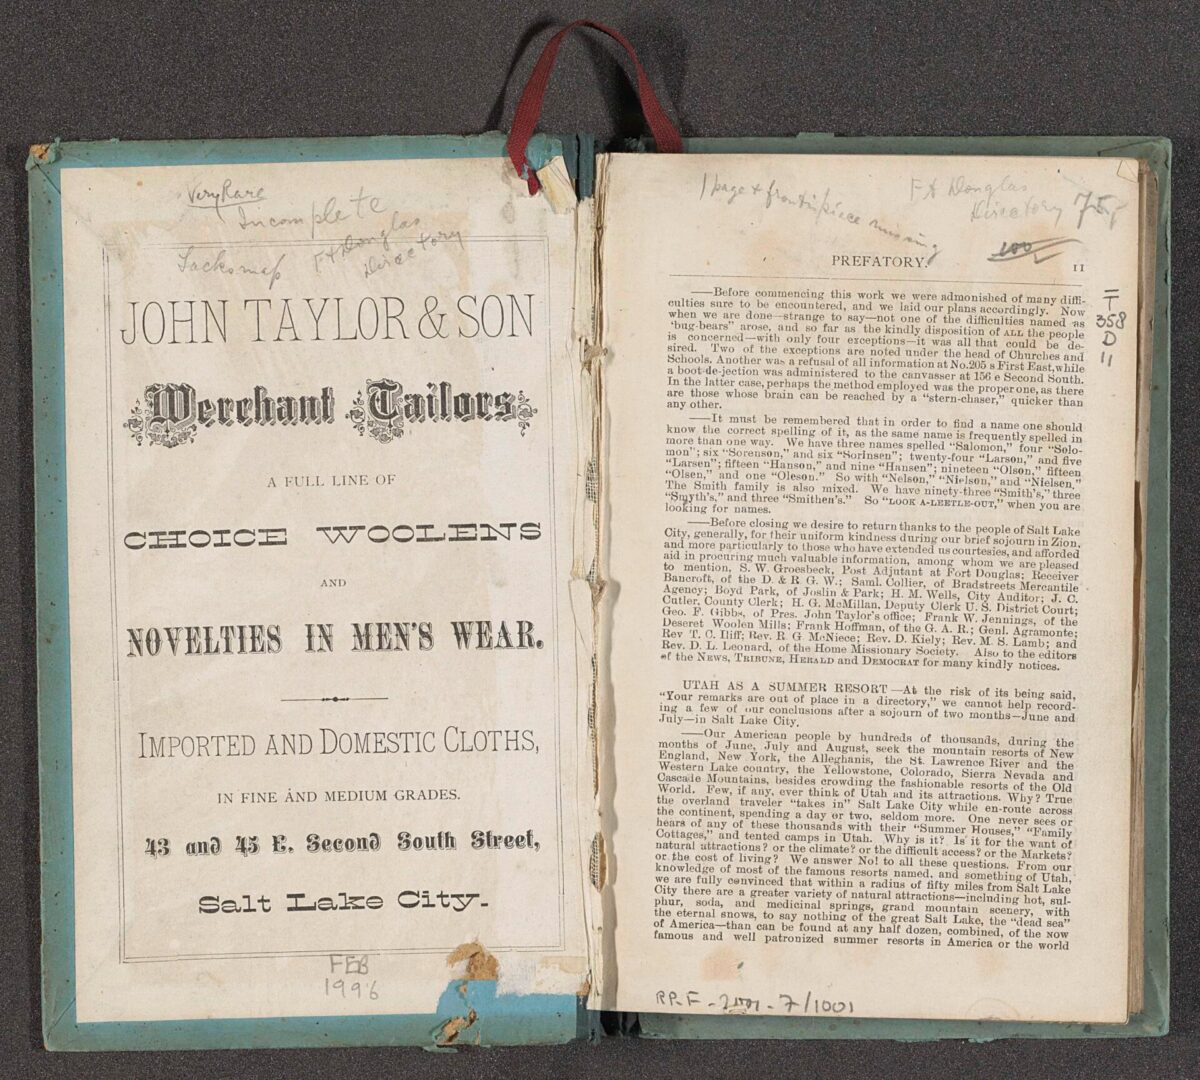 Very Rare
Incomplete
Lacks map
Ft Douglas
Directory
JOHN TAYLOR & SON
Merchant Tailors
A FULL LINE OF
CHOICE WOOLENS
AND
NOVELTIES IN MEN'S WEAR.
IMPORTED AND DOMESTIC CLOTHS,
IN FINE AND MEDIUM GRADES.
43 and 45 E. Second South Street,
Salt Lake City.
FEB
1996
1 page & frontispiece missing
Ft Douglas
Directory
100
PREFATORY.
11
F
358
D
11
——Before commencing this work we were admonished of many diffi-
culties sure to be encountered, and we laid our plans accordingly. Now
when we are done—strange to say—not one of the difficulties named as
'bug-bears" arose, and so far as the kindly disposition of ALL the people
is concerned—with only four exceptions—it was all that could be de-
sired. Two of the exceptions are noted under the head of Churches and
Schools. Another was a refusal of all information at No.205 s First East,while
a boot-de-jection was administered to the canvasser at 156 e Second South.
In the latter case, perhaps the method employed was the proper one, as there
are those whose brain can be reached by a "stern-chaser," quicker than
any other.
——It must be remembered that in order to find a name one should
know the correct spelling of it, as the same name is frequently spelled in
more than one way. We have three names spelled "Salomon," four "Solo-
mon"; six "Sorenson," and six "Sorinsen"; twenty-four "Larson," and five
"Larsen"; fifteen "Hanson," and nine "Hansen"; nineteen "Olson," fifteen
"Olsen," and one "Oleson." So with "Nelson," "Nielson," and "Nielsen."
The Smith family is also mixed. We have ninety-three "Smith's," three
"Smyth's," and three "Smithen's." So "LOOK A-LEETLE-OUT," when you are
looking for names.
——Before closing we desire to return thanks to the people of Salt Lake
City, generally, for their uniform kindness during our brief sojourn in Zion,
and more particularly to those who have extended us courtesies, and afforded
aid in procuring much valuable information, among whom we are pleased
to mention, S. W. Groesbeck, Post Adjutant at Fort Douglas; Receiver
Bancroft, of the D. & R. G. W.; Saml. Collier, of Bradstreets Mercantile
Agency; Boyd Park, of Joslin & Park; H. M. Wells, City Auditor; J. C.
Cutler, County Clerk; H. G. McMillan, Deputy Clerk U. S. District Court;
Geo. F. Gibbs, of Pres. John Taylor's office; Frank W. Jennings, of the
Deseret Woolen Mills; Frank Hoffman, of the G. A. R.; Genl. Agramonte;
Rev T. C. Iliff; Rev. R. G. McNiece; Rev. D. Kiely; Rev. M. S. Lamb; and
Rev. D. L. Leonard, of the Home Missionary Society. Also to the editors
of the NEWS, TRIBUNE, HERALD and DEMOCRAT for many kindly notices.
UTAH AS A SUMMER RESORT—At the risk of its being said,
"Your remarks are out of place in a directory," we cannot help record-
ing a few of our conclusions after a sojourn of two months—June and
July—in Salt Lake City.
——Our American people by hundreds of thousands, during the
months of June, July and August, seek the mountain resorts of New
England, New York, the Alleghanis, the St. Lawrence River and the
Western Lake country, the Yellowstone, Colorado, Sierra Nevada and
Cascade Mountains, besides crowding the fashionable resorts of the Old
World. Few, if any, ever think of Utah and its attractions. Why? True
the overland traveler "takes in" Salt Lake City while en-route across
the continent, spending a day or two, seldom more. One never sees or
hears of any of these thousands with their "Summer Houses," "Family
Cottages," and tented camps in Utah. Why is it? Is it for the want of
natural attractions? or the climate? or the difficult access? or the Markets?
or the cost of living? We answer No! to all these questions. From our
knowledge of most of the famous resorts named, and something of Utah,
we are fully convinced that within a radius of fifty miles from Salt Lake
City there are a greater variety of natural attractions—including hot, sul-
phur, soda, and medicinal springs, grand mountain scenery, with
the eternal snows, to say nothing of the great Salt Lake, the "dead sea"
of America—than can be found at any half dozen, combined, of the now
famous and well patronized summer resorts in America or the world
RP-F-2001-7/1001